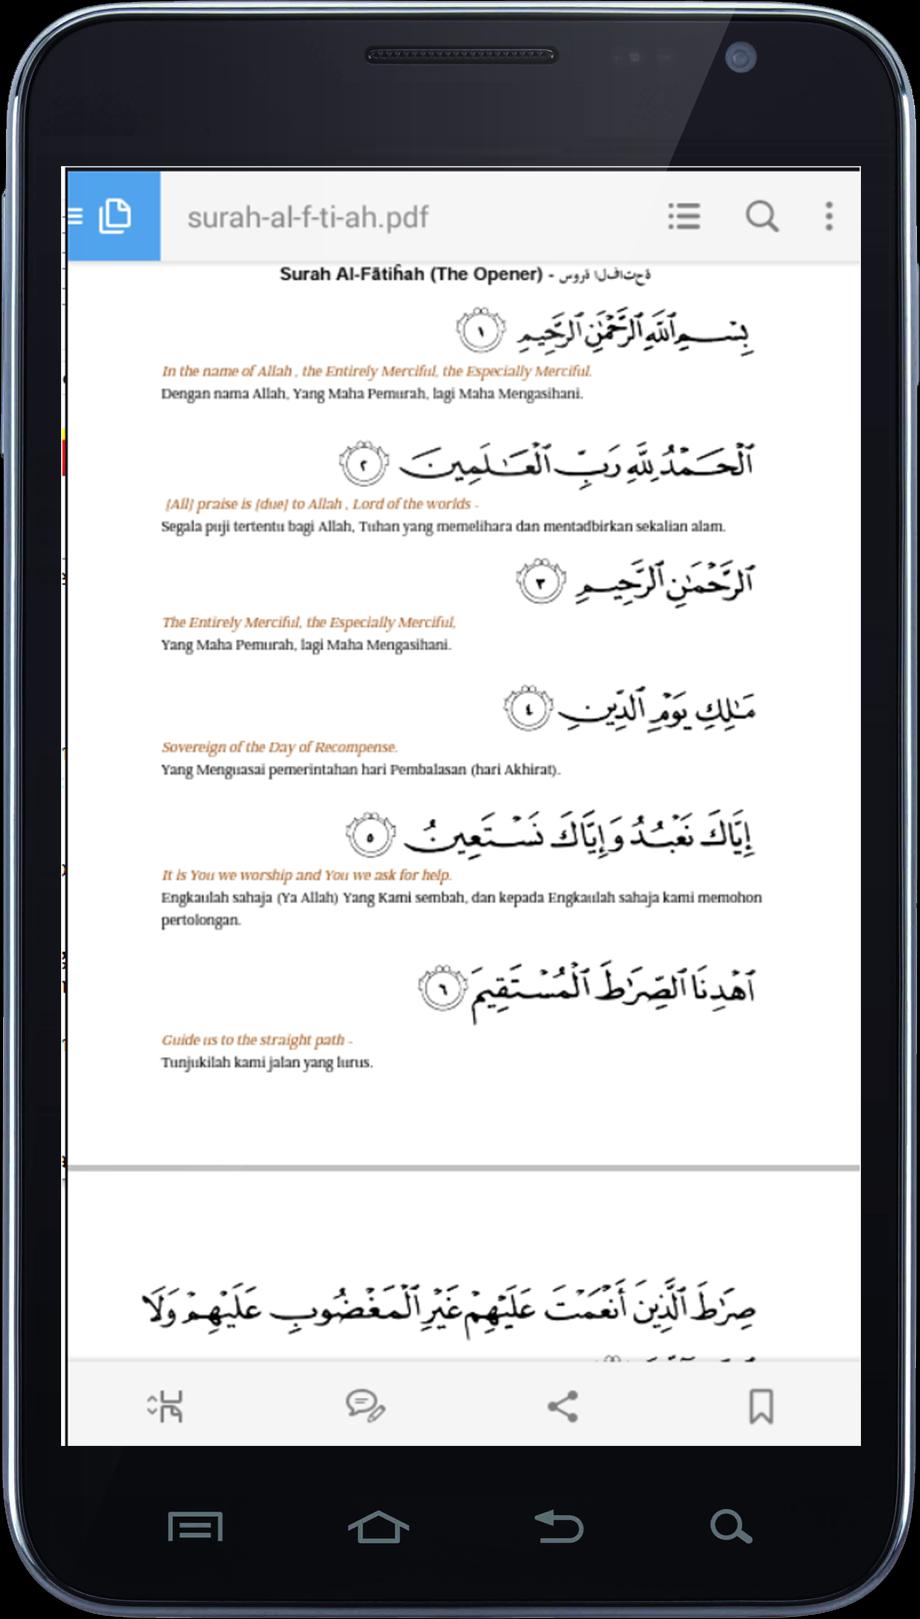 surah-al-f-ti-ah.pdf
Surah Al-Fātiĥah (The Opener) - ةحتافلا ةروس
بِسْمِ ٱللَّهِ ٱلرَّحْمَٰنِ ٱلرَّحِيمِ ١
In the name of Allah , the Entirely Merciful, the Especially Merciful.
Dengan nama Allah, Yang Maha Pemurah, lagi Maha Mengasihani.
ٱلْحَمْدُ لِلَّهِ رَبِّ ٱلْعَٰلَمِينَ ٢
[All] praise is [due] to Allah , Lord of the worlds -
Segala puji tertentu bagi Allah, Tuhan yang memelihara dan mentadbirkan sekalian alam.
ٱلرَّحْمَٰنِ ٱلرَّحِيمِ ٣
The Entirely Merciful, the Especially Merciful,
Yang Maha Pemurah, lagi Maha Mengasihani.
مَٰلِكِ يَوْمِ ٱلدِّينِ ٤
Sovereign of the Day of Recompense.
Yang Menguasai pemerintahan hari Pembalasan (hari Akhirat).
إِيَّاكَ نَعْبُدُ وَإِيَّاكَ نَسْتَعِينُ ٥
It is You we worship and You we ask for help.
Engkaulah sahaja (Ya Allah) Yang Kami sembah, dan kepada Engkaulah sahaja kami memohon
pertolongan.
ٱهْدِنَا ٱلصِّرَٰطَ ٱلْمُسْتَقِيمَ ٦
Guide us to the straight path -
Tunjukilah kami jalan yang lurus.
صِرَٰطَ ٱلَّذِينَ أَنْعَمْتَ عَلَيْهِمْ غَيْرِ ٱلْمَغْضُوبِ عَلَيْهِمْ وَلَا